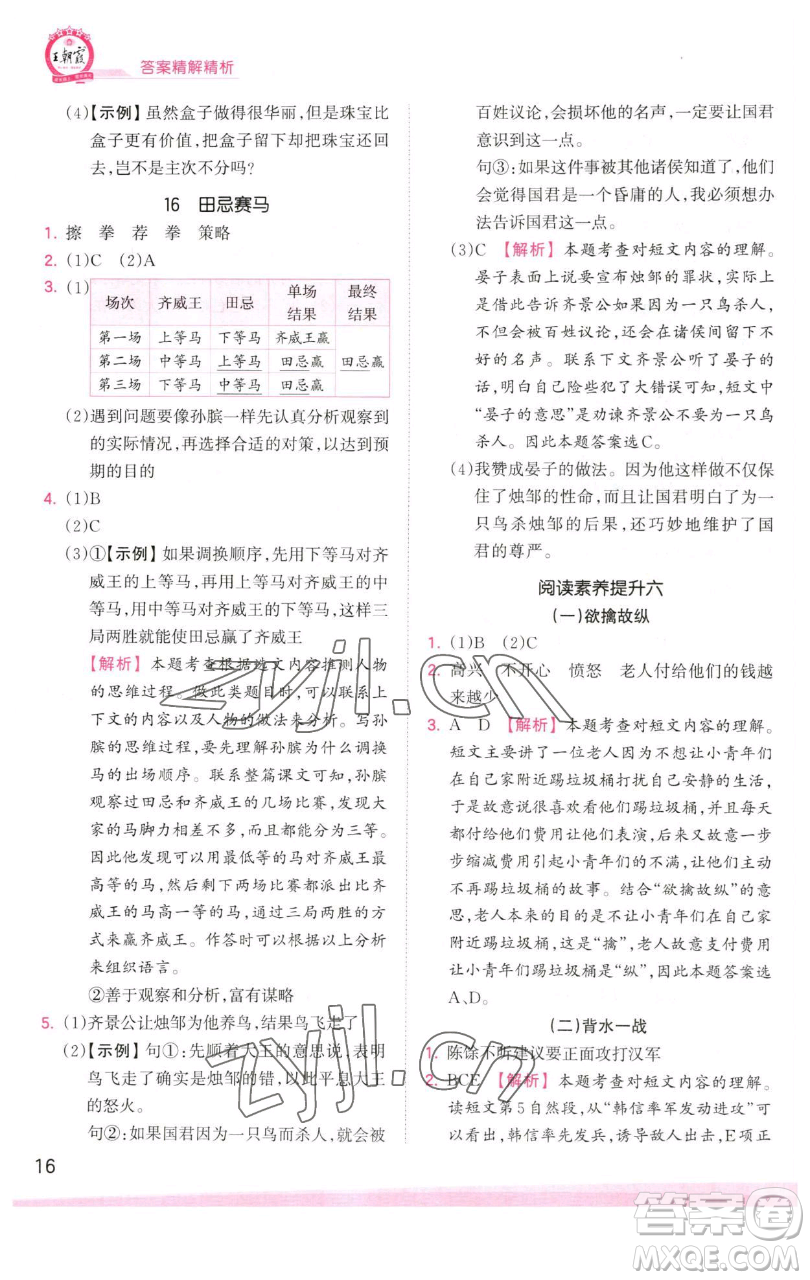 王朝霞
答案精解精析
(4)【示例】虽然盒子做得很华丽，但是珠宝比
盒子更有价值，把盒子留下却把珠宝还回
去，岂不是主次不分吗?
16 田忌赛马
1. 擦 拳 荐 拳 策略
2. (1)C (2)A
3. (1)
场次 齐威王 田忌 单场结果 最终结果
第一场 上等马 下等马 齐威王赢
第二场 中等马 上等马 田忌赢 田忌赢
第三场 下等马 中等马 田忌赢
(2)遇到问题要像孙膑一样先认真分析观察到
的实际情况，再选择合适的对策，以达到预
期的目的
4. (1)B
(2)C
(3)①【示例】如果调换顺序，先用下等马对齐
威王的上等马，用上等马对齐威王的中等
马，用中等马对齐威王的下等马，这样三
局两胜就能使田忌赢了齐威王
【解析】本题考查根据短文内容推测人物
的思维过程。做此类题目时，可以联系上
下文的内容以及人物的做法来分析。写孙
膑的思维过程，要先理解孙膑为什么调换
马的出场顺序。联系整篇课文可知，孙膑
观察过田忌和齐威王的几场比赛，发现大
家的马脚力相差不多，而且都能分为三等。
因此他发现可以用最低等的马对齐威王最
高等的马，然后剩下两场比赛都派出比齐
威王的马高一等的马，通过三局两胜的方
式来赢齐威王。作答时可以根据以上分析
来组织语言。
②善于观察和分析，富有谋略
5. (1)齐景公让烛邹为他养鸟，结果鸟飞走了
(2)【示例】句①：先顺着大王的意思说，表明
鸟飞走了确实是烛邹的错，以此平息大王
的怒火。
句②：如果国君因为一只鸟而杀人，就会被
百姓议论，会损坏他的名声，一定要让国君
意识到这一点。
句③：如果这件事被其他诸侯知道了，他们
会觉得国君是一个昏庸的人，我必须想办
法告诉国君这一点。
(3)C 【解析】本题考查对短文内容的理解。
晏子表面上说是要宣布烛邹的罪状，实际上
是借此告诉齐景公如果因为一只鸟杀人，
不仅会被百姓议论，还会在诸侯间留下不
好的名声。联系下文齐景公听了晏子的
话，明白自己犯了大错误可知，短文中
“晏子的意思”是劝谏齐景公不要因为一只鸟
杀人。因此本题答案选C。
(4)我赞成晏子的做法。因为这样做不仅保
住了烛邹的性命，而且让国君明白了为一
只鸟杀烛邹的后果，还巧妙地维护了国
君的尊严。
阅读素养提升六
(一)欲擒故纵
1. (1)B (2)C
2. 高兴 不开心 愤怒 老人付给他们的钱越
来越少
3. A D 【解析】本题考查对短文内容的理解。
短文主要讲了一位老人因为不想让小青年们
在自己家附近踢垃圾桶打扰自己安静的生活，
于是故意说很喜欢看他们踢垃圾桶，并且每天
都付给他们费用让他们表演，后来又故意一步
步缩减费用引起小青年们的不满，让他们主动
不再踢垃圾桶的故事。结合“欲擒故纵”的意
思，可知老人不想让小青年们在自己家
附近踢垃圾桶，这是“擒”，老人故意支付费用
让小青年们踢垃圾桶是“纵”，因此本题答案选
A、D。
(二)背水一战
1. 陈馀不听建议要正面攻打汉军
2. BCE 【解析】本题考查对短文内容的理解。
读短文第5自然段，从“韩信率军发动进攻”可
以看出，韩信先发兵，诱导敌人出战，E项正
16
zyjl.cn
zyjl.cn
答案卷
MXQE.COM